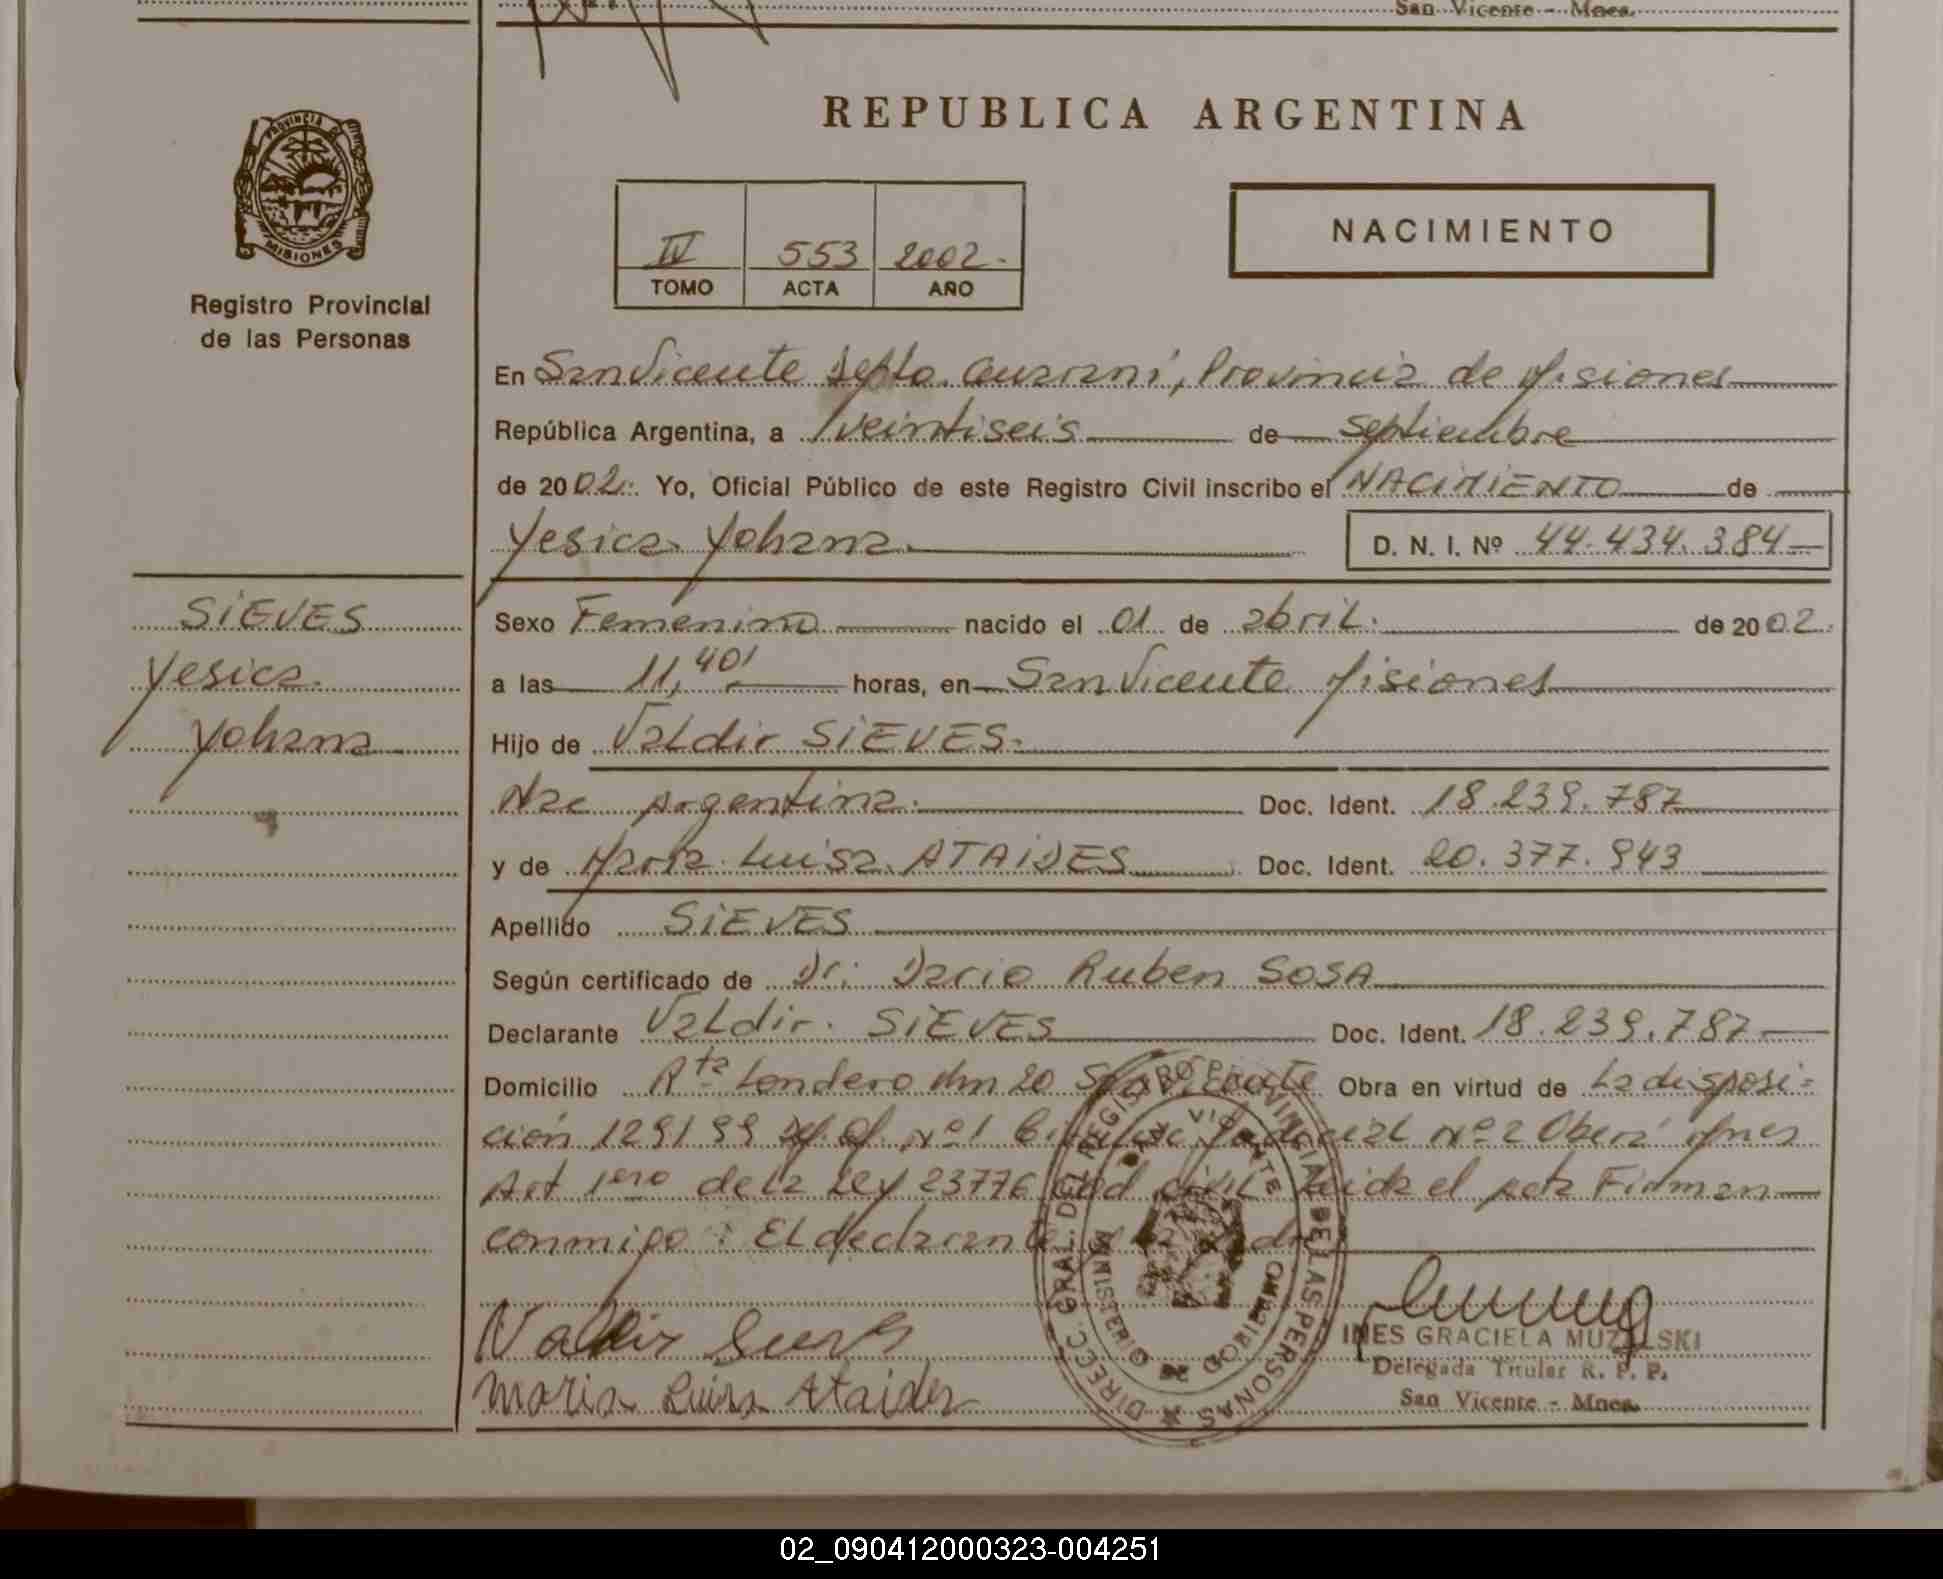 San Vicente - Mnes.
REPUBLICA ARGENTINA
PROVINCIA DE
MISIONES
Registro Provincial
de las Personas
IV 553 2002.
TOMO ACTA AÑO
NACIMIENTO
En San Vicente Depto. Guarani, Provincia de Misiones
República Argentina, a veintiseis de septiembre
de 2002. Yo, Oficial Público de este Registro Civil inscribo el NACIMIENTO de
Yesica Yohana. D. N. I. Nº 44.434.384
SIEVES
Yesica
Yohana
Sexo Femenino nacido el 01 de abril. de 2002.
a las 11,40' horas, en San Vicente Misiones
Hijo de Valdir SIEVES.
Nac Argentina. Doc. Ident. 18.239.787
y de Maria Luisa ATAIDES Doc. Ident. 20.377.943
Apellido SIEVES
Según certificado de Dr. Dario Ruben SOSA
Declarante Valdir SIEVES Doc. Ident. 18.239.787
Domicilio Rta Londero Km 20 San Vicente Obra en virtud de La disposi=
ción 1291 99 Nº 1 Nº 2 Oberá Mnes
Art 1ero de la Ley 23776 Cod civil Leida el acta Firman
conmigo: El declarante
Valdir
Maria Luisa Ataides
INES GRACIELA MUZALSKI
Delegada Titular R. P. P.
San Vicente - Mnes.
DIRECC. GRAL. DEL REGISTRO PROVINCIAL DE LAS PERSONAS
SAN VICENTE
MINISTERIO DE GOBIERNO
02_090412000323-004251